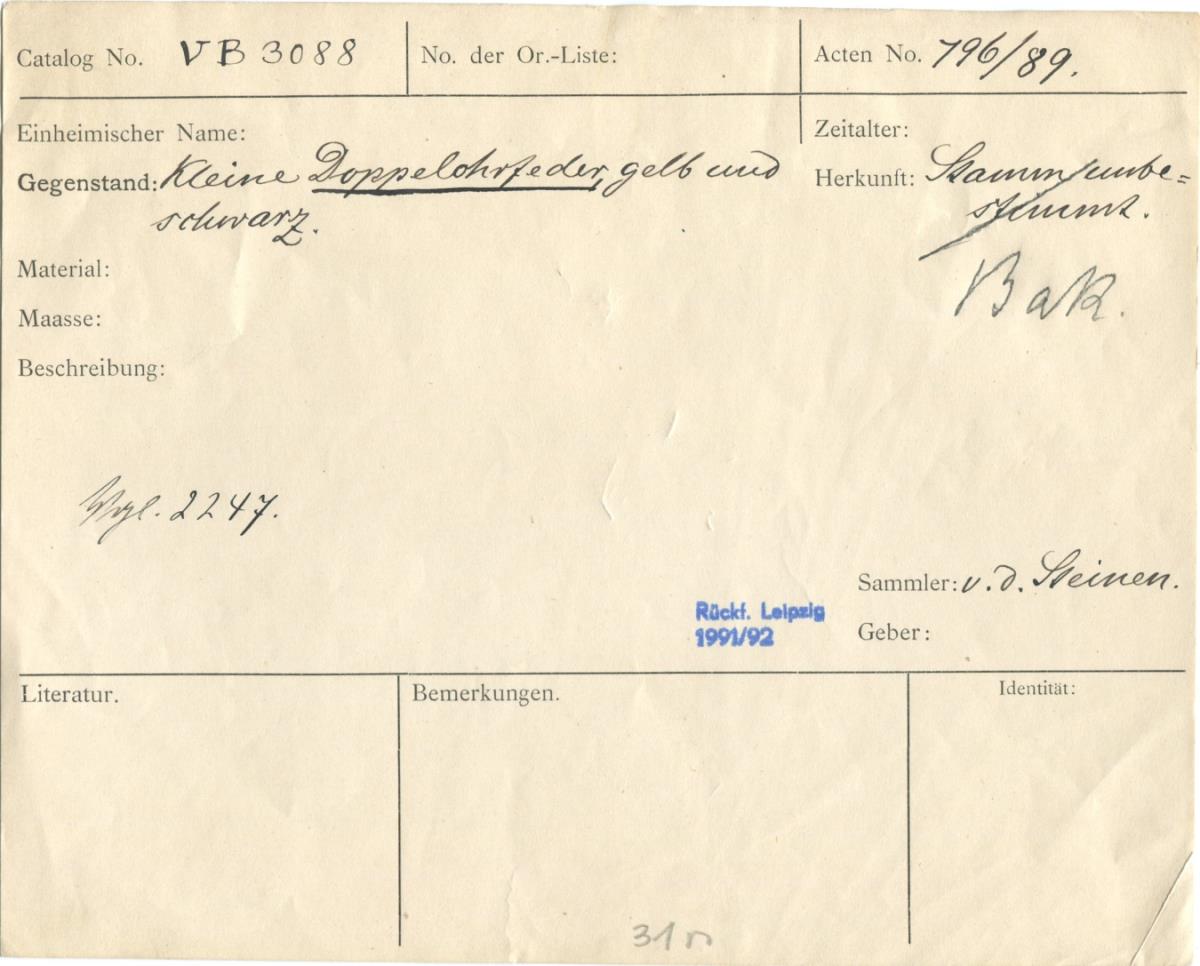 Catalog No. VB 3088 No. der Or.-Liste: Acten No. 796/89.
Einheimischer Name: Zeitalter:
Gegenstand: Kleine Doppelohrfeder, gelb und
schwarz.
Herkunft: Stamm unbe=
stimmt.
Bak.
Material:
Maasse:
Beschreibung:
Vgl. 2247.
Sammler: v. d. Steinen.
Rückf. Leipzig
1991/92
Geber:
Literatur. Bemerkungen. Identität: